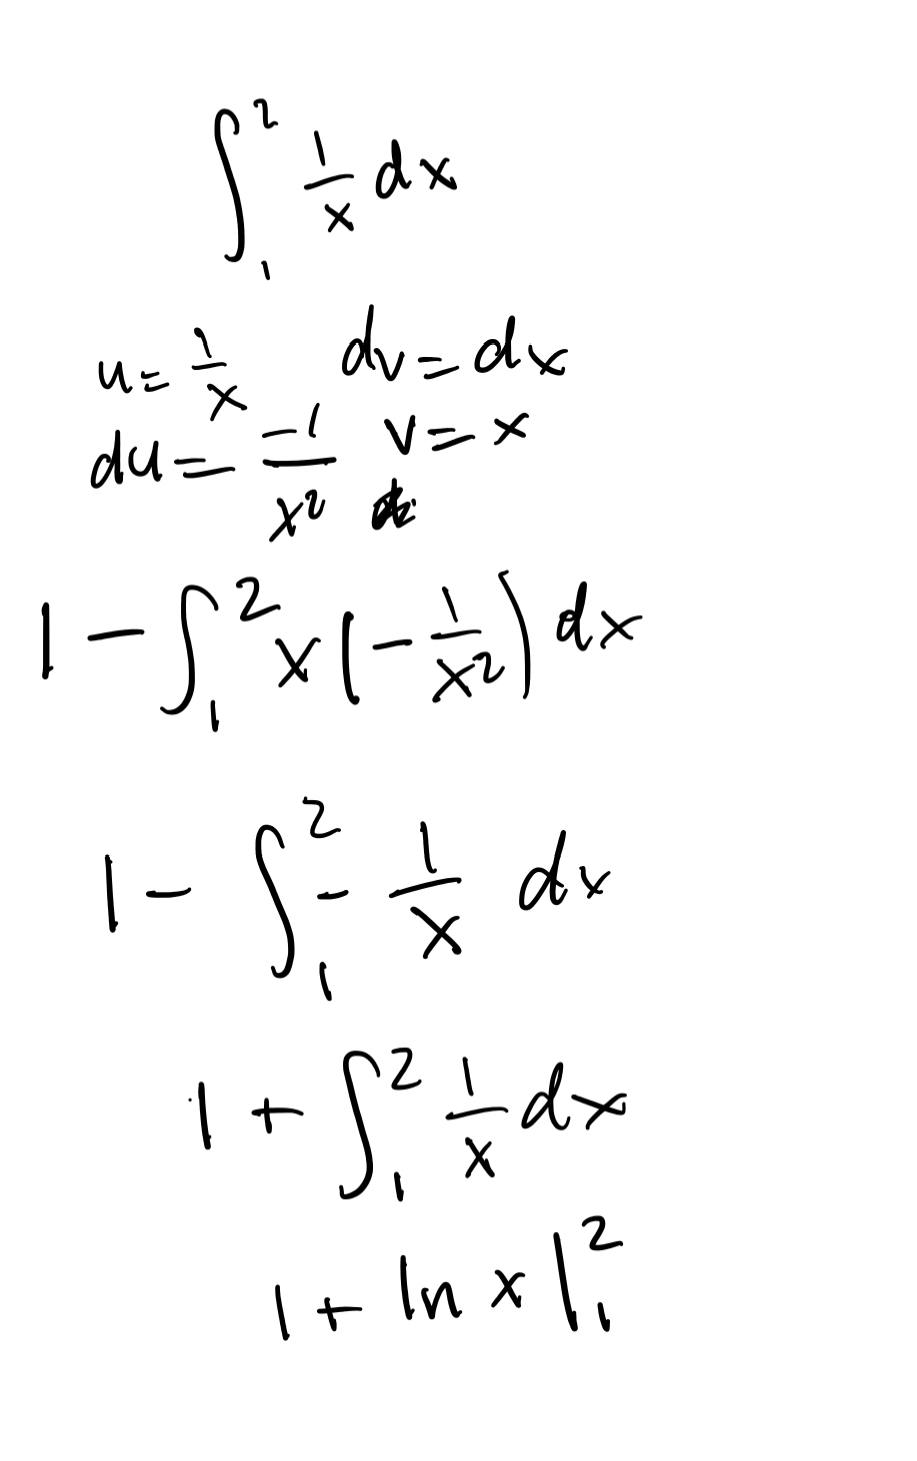 ∫₁² 1/x dx
u = 1/x  dv = dx
du = -1/x²  v = x
1 - ∫₁² x(-1/x²) dx
1 - ∫₁² - 1/x dx
1 + ∫₁² 1/x dx
1 + ln x |₁²